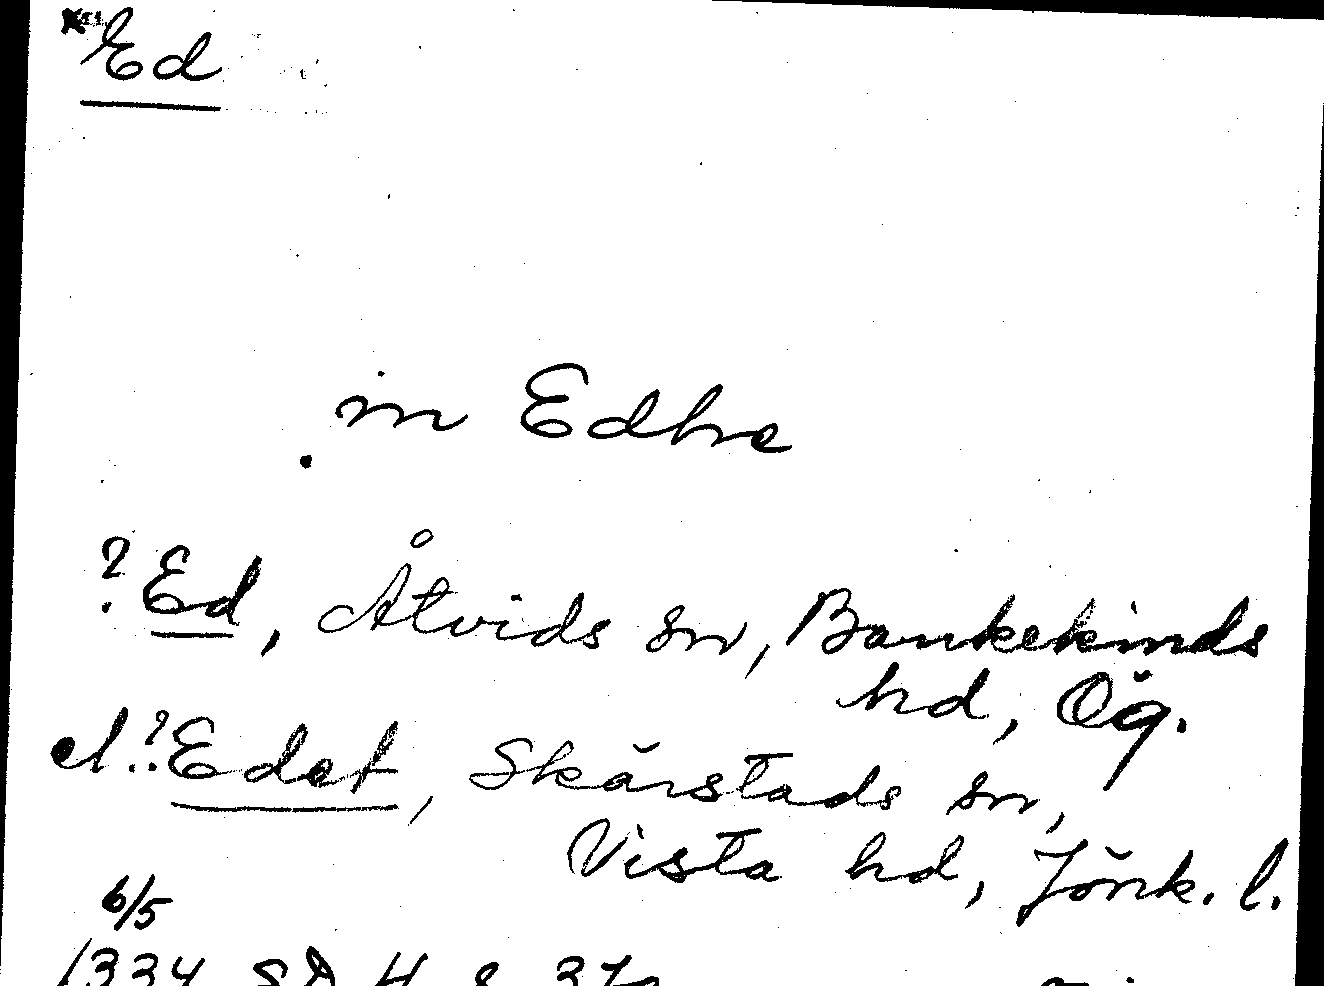 Ed
in Edhe
? Ed, Åtvids sn, Bankekinds
hd, Ög.
el. ? Edet, Skärstads sn,
Vista hd, Jönk. l.
6/5
1334 SD 4 s